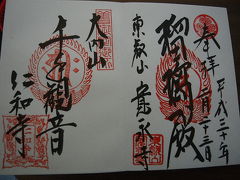 奉拝
平成 十年
月二十三日
瑠璃殿
東叡山 寛永寺
大内山
千手観音
仁和寺